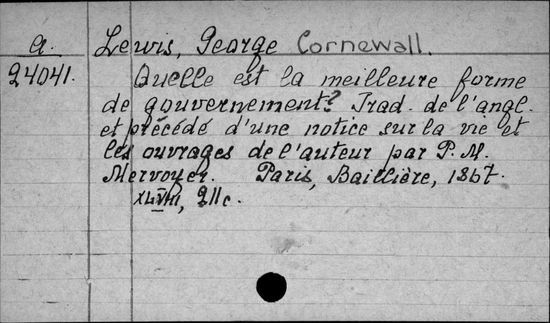 a. Lewis, George Cornewall.
24041. Quelle est la meilleure forme
de gouvernement? Trad. de l'angl.
et précédé d'une notice sur la vie et
les ouvrages de l'auteur par P. M.
Mervoyer. Paris, Baillière, 1867.
XLVIII, 211c.